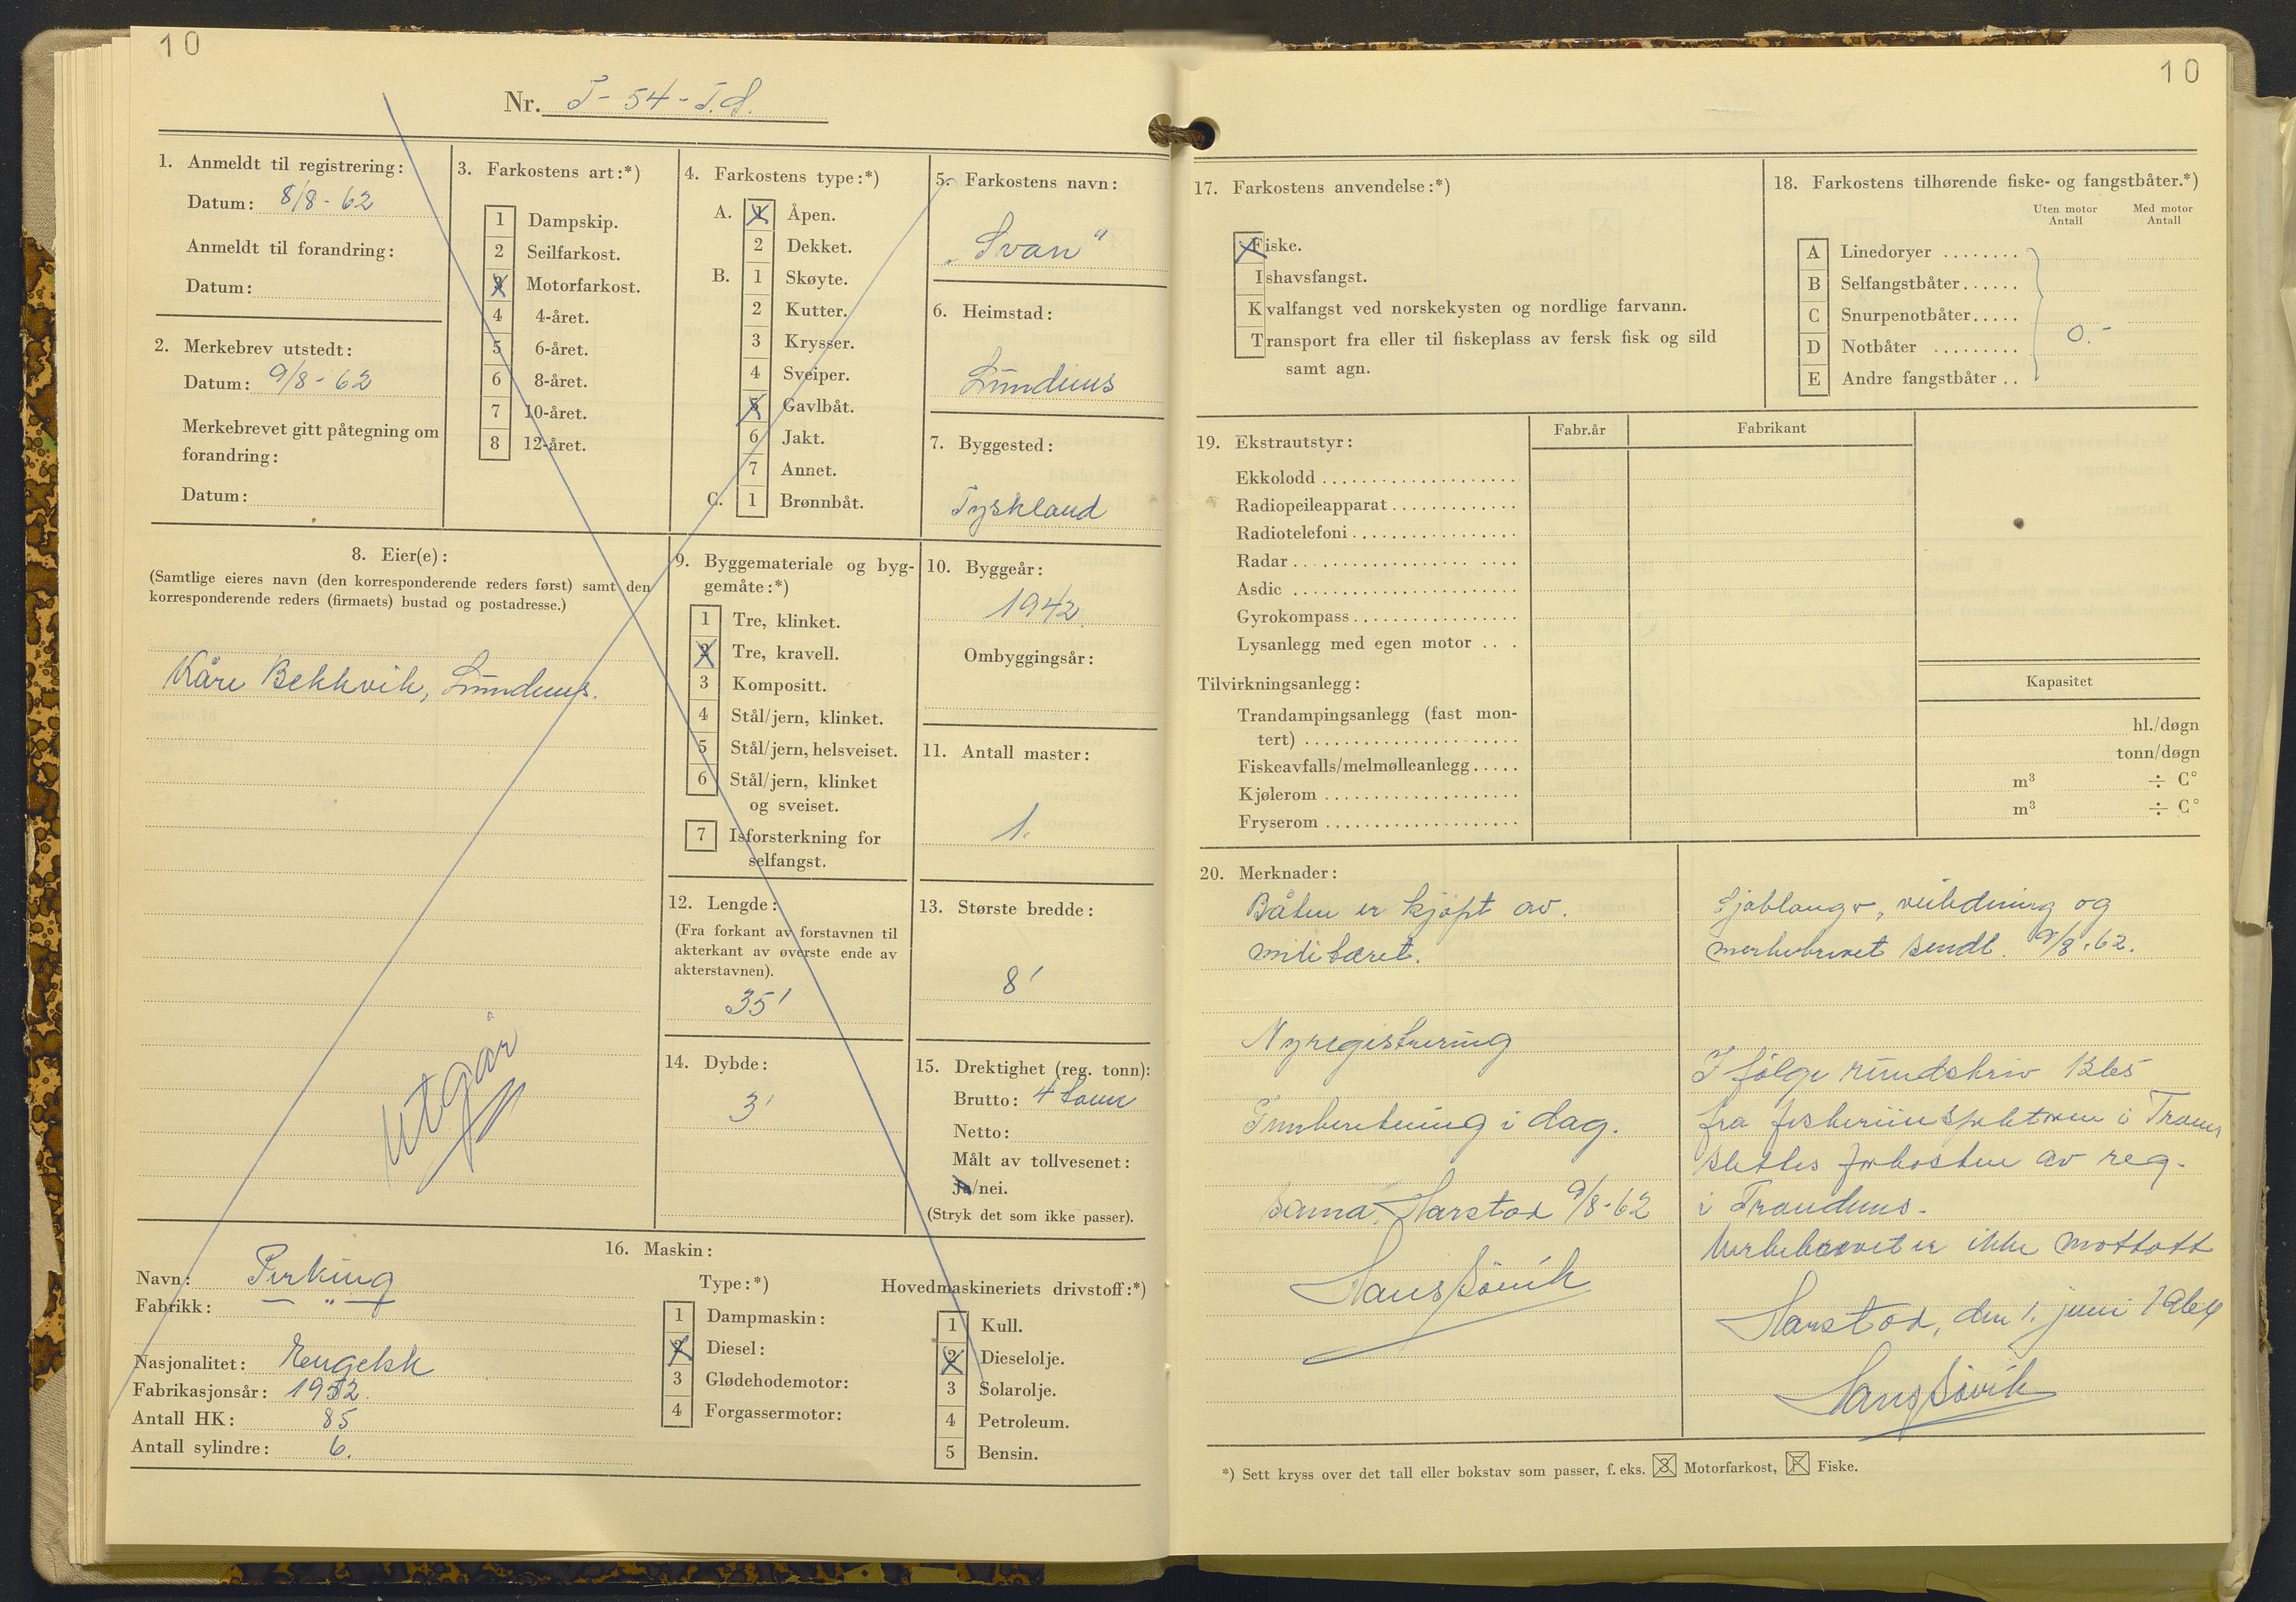 10
Nr. T-54-T.d.
1. Anmeldt til registrering:
Datum: 8/8-62
Anmeldt til forandring:
Datum:
2. Merkebrev utstedt:
Datum: 9/8-62
Merkebrevet gitt påtegning om
forandring:
Datum:
3. Farkostens art:*)
1 Dampskip.
2 Seilfarkost.
3 Motorfarkost.
4 4-året.
5 6-året.
6 8-året.
7 10-året.
8 12-året.
4. Farkostens type:*)
A. 1 Åpen.
2 Dekket.
B. 1 Skøyte.
2 Kutter.
3 Krysser.
4 Sveiper.
5 Gavlbåt.
6 Jakt.
7 Annet.
C. 1 Brønnbåt.
5. Farkostens navn:
"Svan"
6. Heimstad:
Lundenes
7. Byggested:
Tyskland
8. Eier(e):
(Samtlige eieres navn (den korresponderende reders først) samt den
korresponderende reders (firmaets) bustad og postadresse.)
Kåre Bekkvik, Lundenes.
Utgår
9. Byggemateriale og byg-
gemåte:*)
1 Tre, klinket.
2 Tre, kravell.
3 Kompositt.
4 Stål/jern, klinket.
5 Stål/jern, helsveiset.
6 Stål/jern, klinket
og sveiset.
7 Isforsterkning for
selfangst.
10. Byggeår:
1942
Ombyggingsår:
11. Antall master:
1.
12. Lengde:
(Fra forkant av forstavnen til
akterkant av øverste ende av
akterstavnen).
35'
13. Største bredde:
8'
14. Dybde:
3'
15. Drektighet (reg. tonn):
Brutto: 4 tonn
Netto:
Målt av tollvesenet:
Ja/nei.
(Stryk det som ikke passer).
16. Maskin:
Navn: Perking
Fabrikk: — " —
Nasjonalitet: Engelsk
Fabrikasjonsår: 1952.
Antall HK: 85
Antall sylindre: 6.
Type:*)
1 Dampmaskin:
2 Diesel:
3 Glødehodemotor:
4 Forgassermotor:
Hovedmaskineriets drivstoff:*)
1 Kull.
2 Dieselolje.
3 Solarolje.
4 Petroleum.
5 Bensin.
10
17. Farkostens anvendelse:*)
Fiske.
Ishavsfangst.
Kvalfangst ved norskekysten og nordlige farvann.
Transport fra eller til fiskeplass av fersk fisk og sild
samt agn.
18. Farkostens tilhørende fiske- og fangstbåter.*)
Uten motor Med motor
Antall Antall
A Linedoryer ........
B Selfangstbåter......
C Snurpenotbåter.....
D Notbåter .........
E Andre fangstbåter ..
0.-
19. Ekstrautstyr:
Fabr.år Fabrikant
Ekkolodd
Radiopeileapparat
Radiotelefoni
Radar
Asdic
Gyrokompass
Lysanlegg med egen motor ...
Tilvirkningsanlegg:
Kapasitet
Trandampingsanlegg (fast mon-
tert) hl./døgn
Fiskeavfalls/melmølleanlegg..... tonn/døgn
Kjølerom m³ ÷ C°
Fryserom m³ ÷ C°
20. Merknader:
Båten er kjøpt av.
militæret.
Nyregistrering
Innberetning i dag.
Sama, Harstad 9/8-62
Hans Søvik
Sjøblanger, veiledning og
merkebrevet sendt. 9/8-62.
I følge rundskriv 1265
fra fiskeriinspektøren i Troms
slettes farkosten av reg.
i Trondenes.
Merkebrevet er ikke mottatt
Harstad, den 1. juni 1964
Hans Søvik
*) Sett kryss over det tall eller bokstav som passer, f. eks. 3 Motorfarkost, F Fiske.